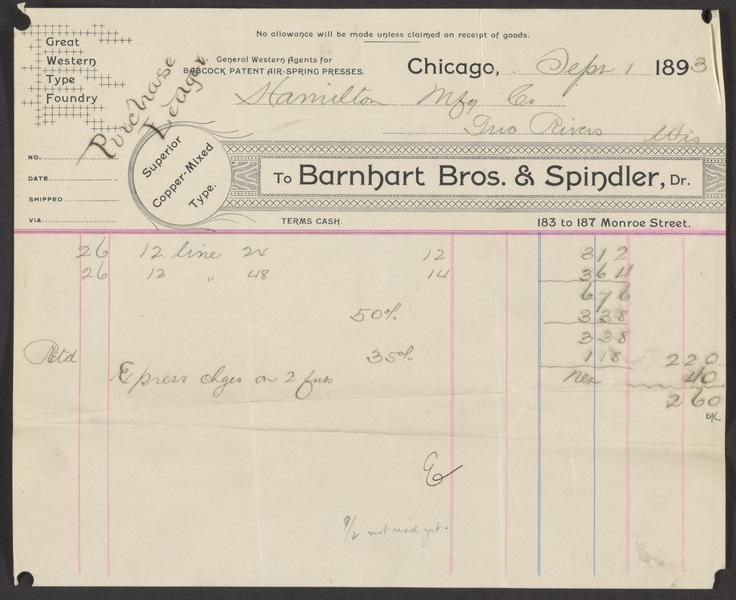 No allowance will be made unless claimed on receipt of goods.
Great
Western
Type
Foundry
Purchase
Ledger.
General Western Agents for
BABCOCK PATENT AIR-SPRING PRESSES.
Chicago, Sept 1 1893
Hamilton Mfg Co
Two Rivers Wis
Superior
Copper-Mixed
Type.
NO.
DATE
SHIPPED
VIA
To Barnhart Bros. & Spindler, Dr.
TERMS CASH.
183 to 187 Monroe Street.
26 12 line 24 12 312
26 12 " 48 14 364
676
50% 338
338
Retd 35% 118 220
Express chges on 2 fnts net 40
260
OK
9/2 not rec'd yet.